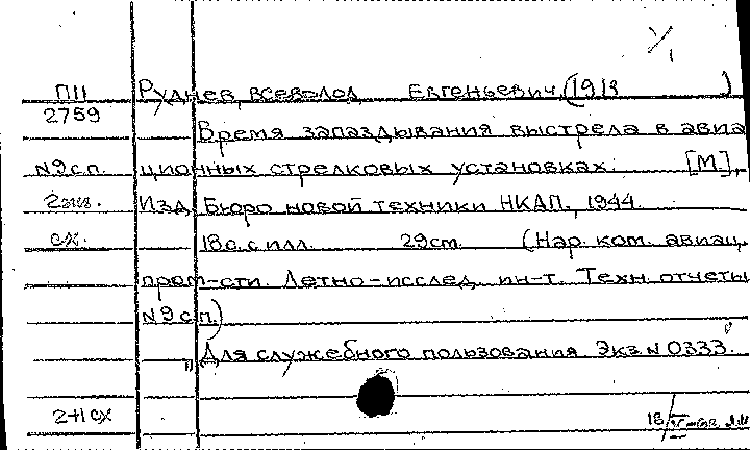 П11 Руднев, Всеволод Евгеньевич, (1918 )
2759
Время запаздывания выстрела в авиа
N9сп. ционных стрелковых установках. [М.],
2экз. Изд. Бюро новой техники НКАП, 1944.
сх. 18с. с илл. 29см. (Нар. ком. авиац.
пром-сти. Летно-исслед. ин-т. Техн. отчеты
N9сп.)
Для служебного пользования. Экз. N 0333.
2+1 сх 18/